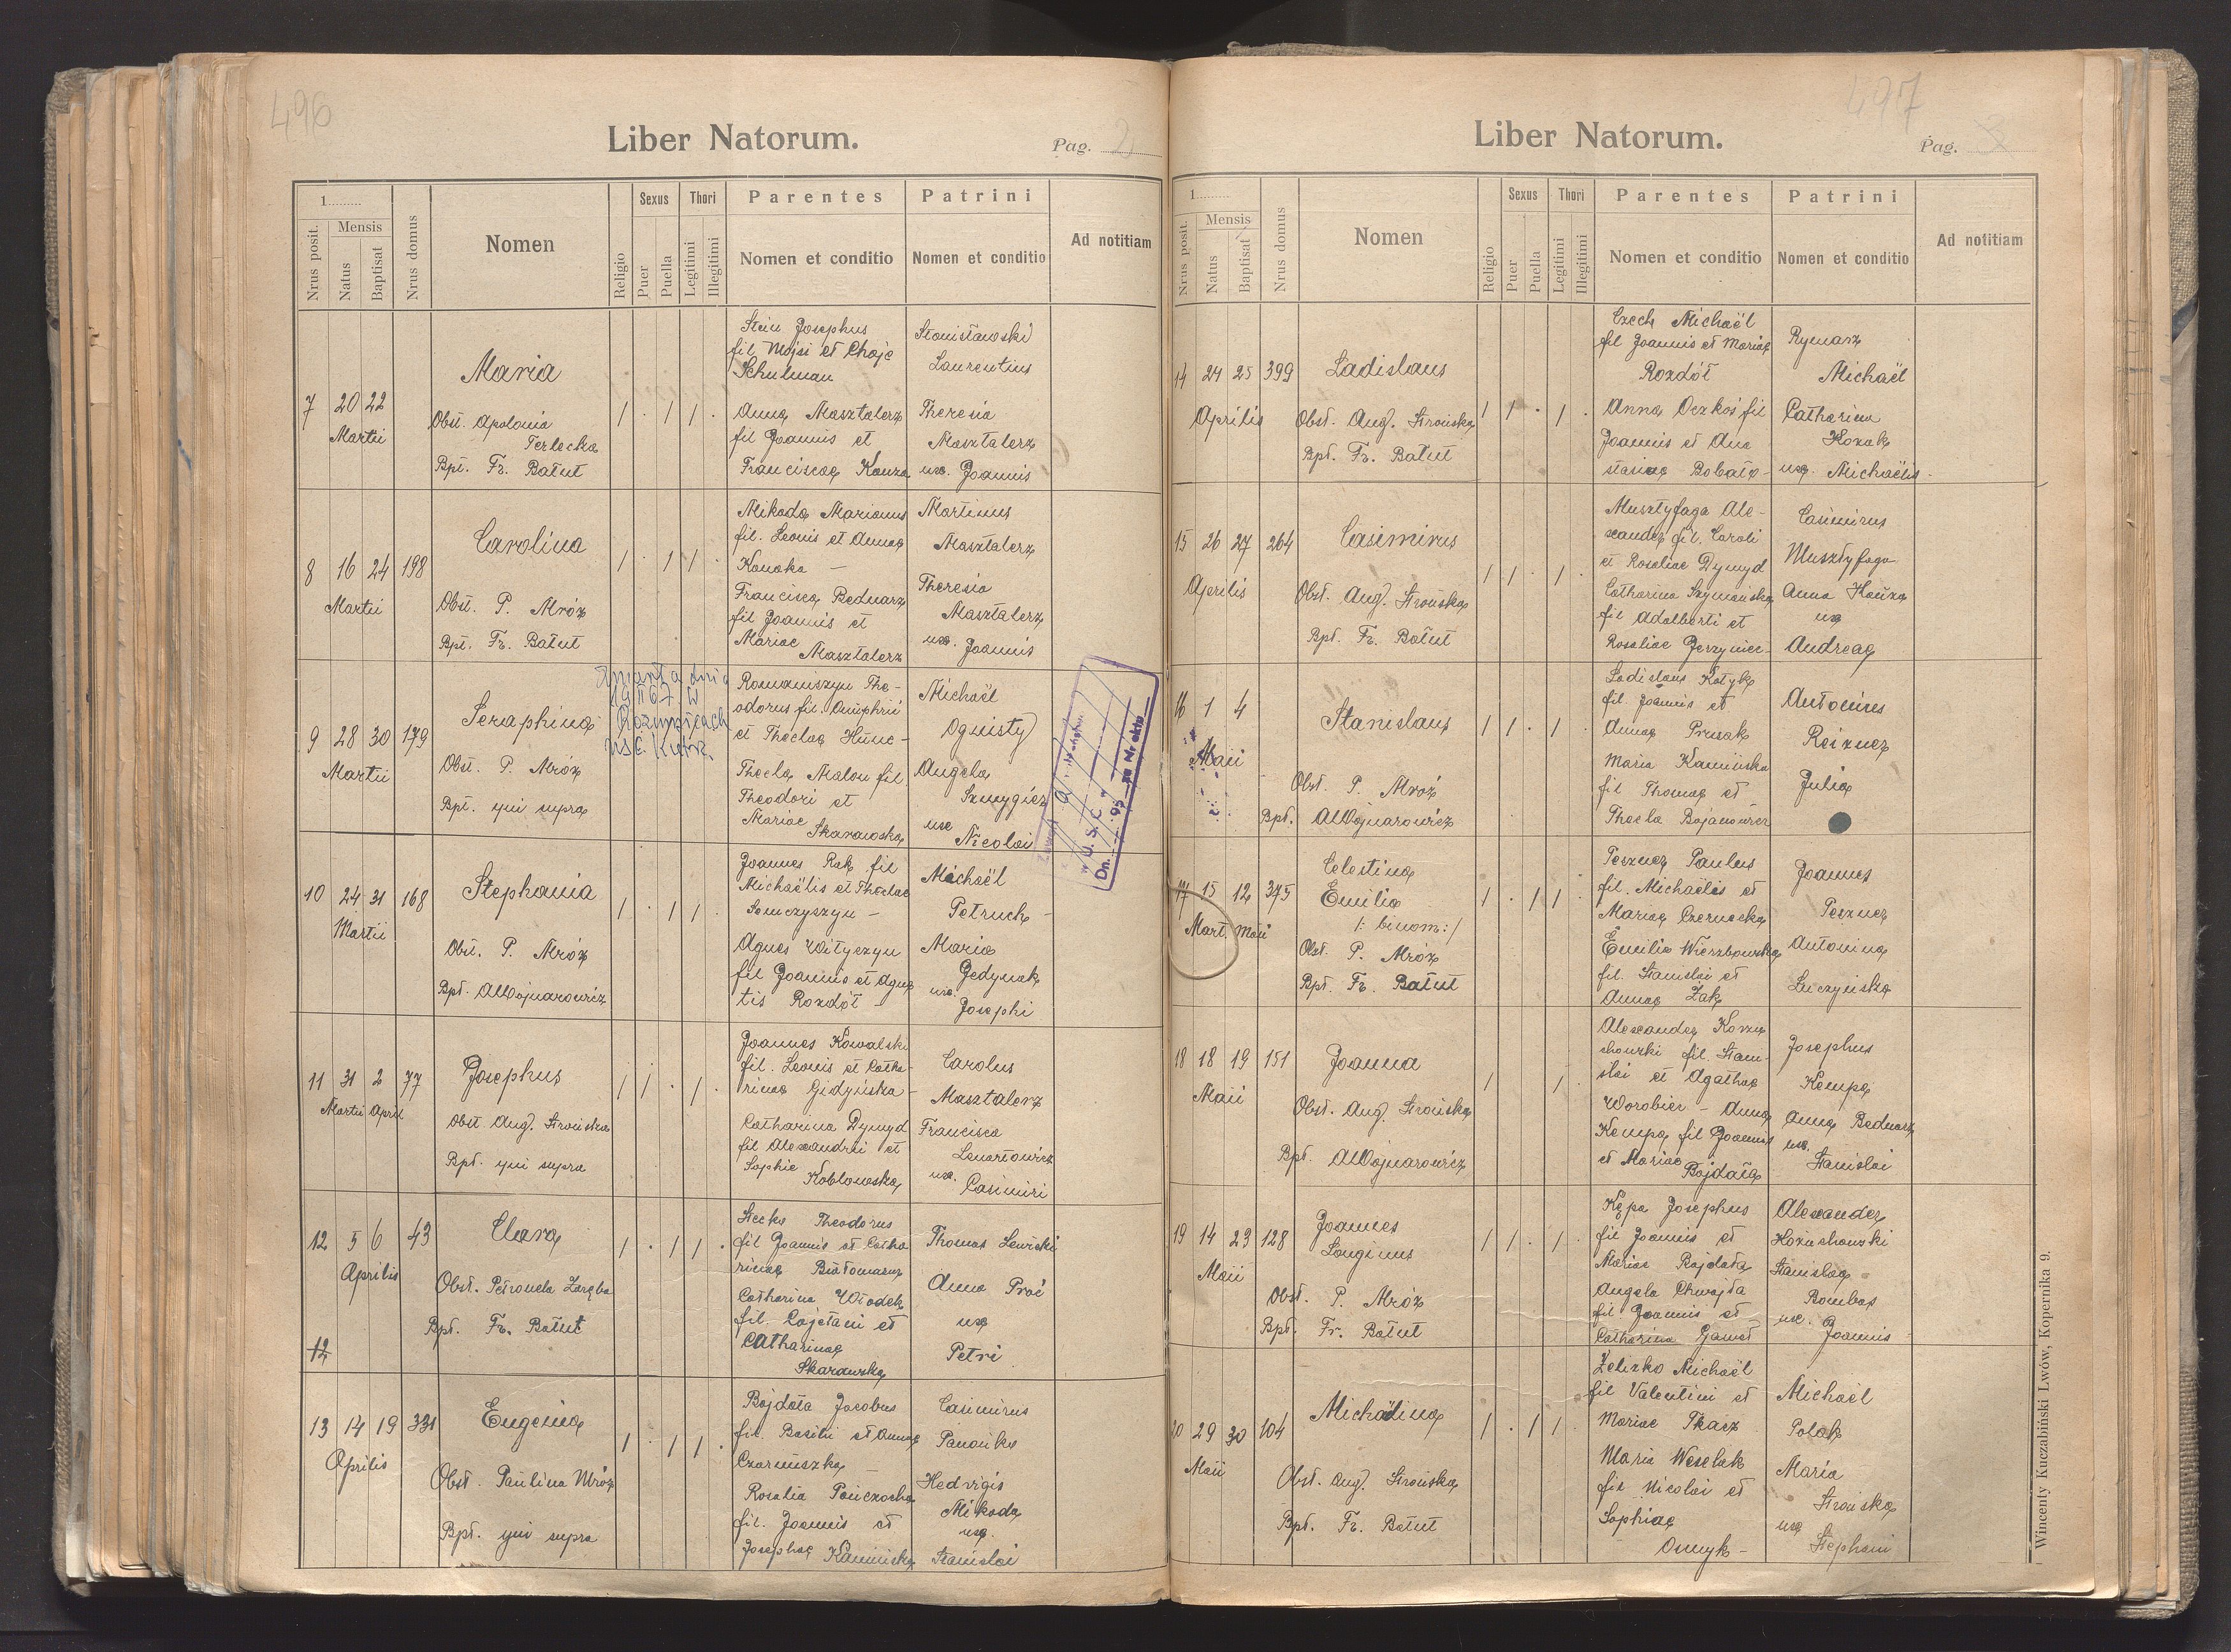 496
Liber Natorum.
Pag. 2
1
Nrus posit.
Mensis
Natus
Baptisat
Nrus domus
Nomen
Religio
Sexus
Puer
Puella
Thori
Legitimi
Illegitimi
Parentes
Nomen et conditio
Patrini
Nomen et conditio
Ad notitiam
7 20 22
Martii
Maria
Obst. Apolonia
Terlecka
Bpt. Fr. Batut
1 . 1 1 .
Stein Josephus
fil Mojsi et Chaje
Schulman
Anna Masztalerz
fil Joannis et
Franciscae
Stanisławski
Laurentius
Theresia
Masztalerz
ux. Joannis
8 16 24 198
Martii
Carolina
Obst. P. Mróz
Bpt. Fr. Batut
1 . 1 1 .
Mikoda Marianus
fil. Leonis et Annae
Francisca Bednarz
fil Joannis et
Mariae
Masztalerz
Martinus
Masztalerz
Theresia
Masztalerz
ux. Joannis
9 28 30 179
Martii
Seraphina
Obst. P. Mróz
Bpt. qui supra
Zmarła dnia
19 II 67 w
USC
odorus fil. Onuphrii
et Theclae
Thecla Malon fil.
Theodori et
Mariae
Skarawska
Michaël
Ognisty
Angela
Szmygicz
ux
Nicolai
U. S. C.
Dn. 95 za Nr aktu
10 24 31 168
Martii
Stephania
Obst. P. Mróz
Bpt. AWojnarowicz
1 . 1 1 .
Joannes Rak fil
Michaëlis et Theclae
Semczyszyn -
Agnes Wityczyn
fil Joannis et Agne
tis Rozdół -
Michaël
Petruch -
Maria
Gedynak
ux.
Josephi
11 31 2 77
Martii April
Josephus
Obst Aug. Strońska
Bpt. qui supra
1 1 . 1 .
Joannes Kowalski
fil. Leonis et Catha-
rinae Gidyńska -
Catharina Dymyd
fil Alexandri et
Sophie
Kobłowska
Carolus
Masztalerz
Francisca
Lenartowicz
ux. Casimiri
12 5 6 43
Aprilis
Clara
Obst. Petronela Zaręba
Bpt. Fr. Batut
12
1 . 1 1 .
Stecko Theodorus
fil Joannis et Catha
rinae
Catharina Włodek
fil. Cajetani et
Catharinae
Skarawska
Thomas Lewicki
Anna Proć
ux
Petri
13 14 19 331
Aprilis
Eugenia
Obst. Paulina Mróz
Bpt. qui supra
1 . 1 1 .
Bojdała Jacobus
fil. Basilii et Annae
Czarniszka
Rosalia Pańczocha
fil. Joannis et
Josephae Kamińska
Casimirus
Panońko
Hedvigis
Mikoda
ux.
Stanislai
497
Liber Natorum.
Pag. 3
1
Nrus posit.
Mensis
Natus
Baptisat
Nrus domus
Nomen
Religio
Sexus
Puer
Puella
Thori
Legitimi
Illegitimi
Parentes
Nomen et conditio
Patrini
Nomen et conditio
Ad notitiam
14 24 25 399
Aprilis
Ladislaus
Obst. Aug. Strońska
Bpt. Fr. Batut
1 1 . 1 .
Czech Michaël
fil Joannis et Mariae
Rozdół
Anna Oczkoś fil
Joannis et Ana
stasiae Bobała -
Rymarz
Michaël
Catharina
Kozak
ux. Michaëlis
15 26 27 264
Aprilis
Casimirus
Obst. Aug. Strońska
Bpt. Fr. Batut
1 1 . 1 .
Musztyfaga Ale-
xander fil. Caroli
et Rosaliae Dymyd
Catharina Szymańska
fil Adalberti et
Rosaliae
Casimirus
Musztyfaga
Anna
ux
Andreae
16 1 4
Maii
Stanislaus
Obst. P. Mróz
Bpt. AWojnarowicz
1 1 . 1 .
Ladislaus Kotyk
fil. Joannis et
Annae Prusak
Maria Kamińska
fil Thomae et
Thecla Bojanowicz
Antonius
Reizner
Julia
17 15 12 375
Mart. Maii
Celestina
Emilia
/: binom :/
Obst. P. Mróz
Bpt. Fr. Batut
1 . 1 1 .
Peszner Paulus
fil. Michaëlis et
Mariae Czernecka
Emilia Wierzbowska
fil. Stanislai et
Annae Żak
Joannes
Peszner
Antonina
Luczyńska
18 18 19 151
Maii
Joanna
Obst. Aug. Strońska
Bpt. AWojnarowicz
1 1 .
Alexander Korzu
chowski fil. Stani-
slai et Agathae
Worobiec - Anna
Kempa fil Joannis
et Mariae Bojdała
Josephus
Kempa
Anna Bednarz
ux.
Stanislai
19 14 23 128
Maii
Joannes
Longinus
Obst. P. Mróz
Bpt. Fr. Batut
1 1 . 1 .
Kępa Josephus
fil Joannis et
Mariae Bojdała
Angela Chwajta
fil Joannis et
Catharina
Alexander
Kożuchowski
Stanislaa
Bombas
ux. Joannis
20 29 30 104
Maii
Michalina
Obst. Aug. Strońska
Bpt. Fr. Batut
1 . 1 1 .
Zelizko Michaël
fil Valentini et
Mariae Tkacz
Maria Weselak
fil Nicolai et
Sophiae
Osmyk -
Michaël
Polak
Maria
Strońska
ux
Stephani
Wincenty Kuczabiński Lwów, Kopernika 9.